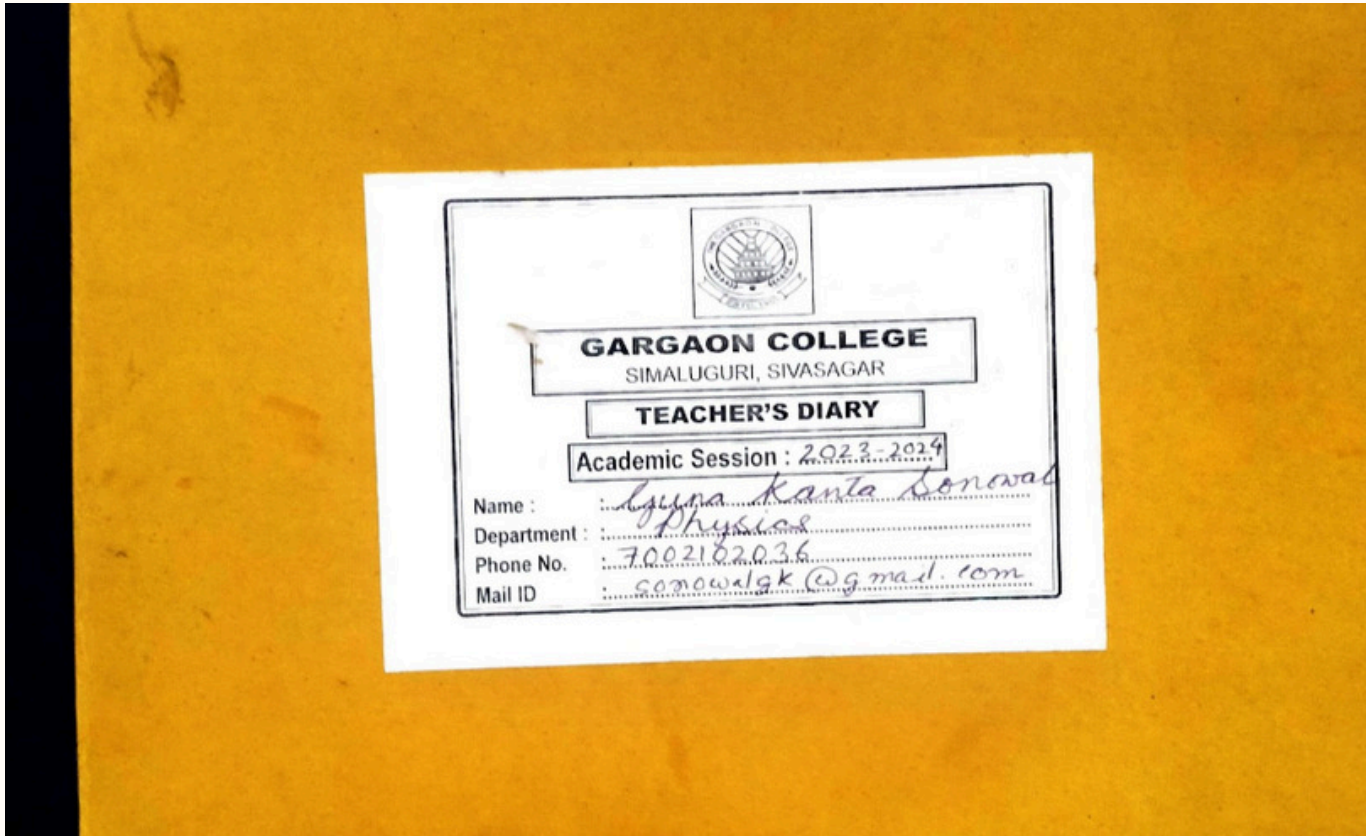 THE GARGAON COLLEGE
GARGAON COLLEGE
SIMALUGURI, SIVASAGAR
TEACHER'S DIARY
Academic Session : 2023-2024
Name : : Guna Kanta Sonowal
Department : : Physics
Phone No. : 7002102036
Mail ID : sonowalgk@gmail.com